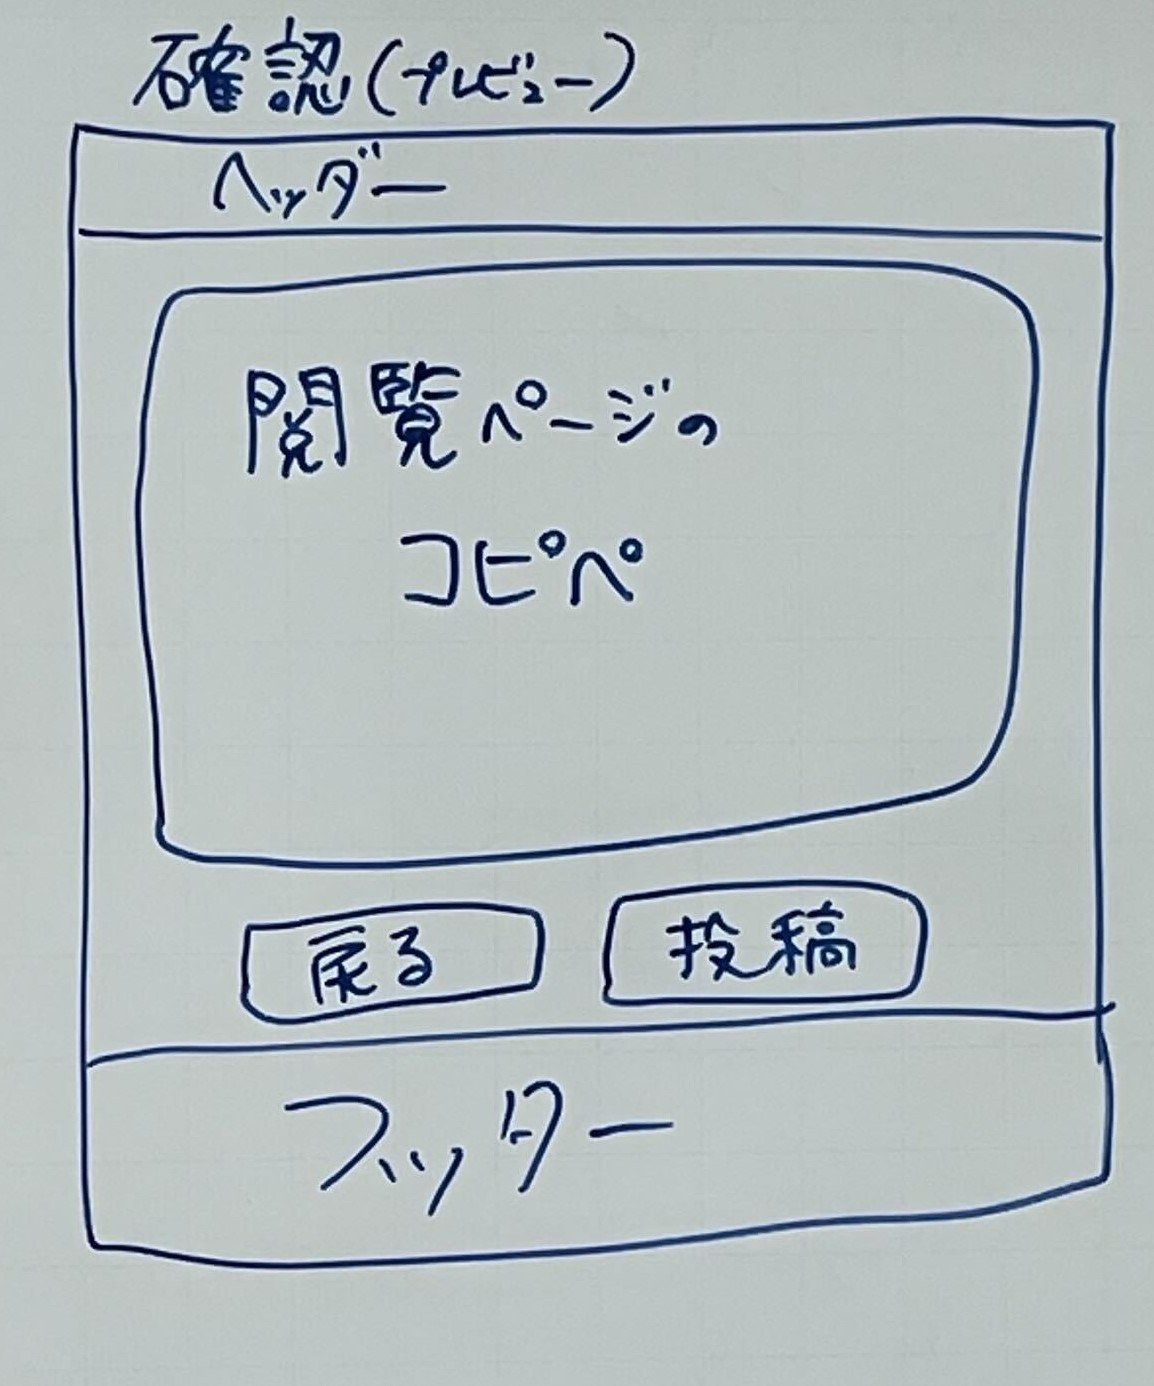 確認(プレビュー)
ヘッダー
閲覧ページの
コピペ
戻る
投稿
フッター